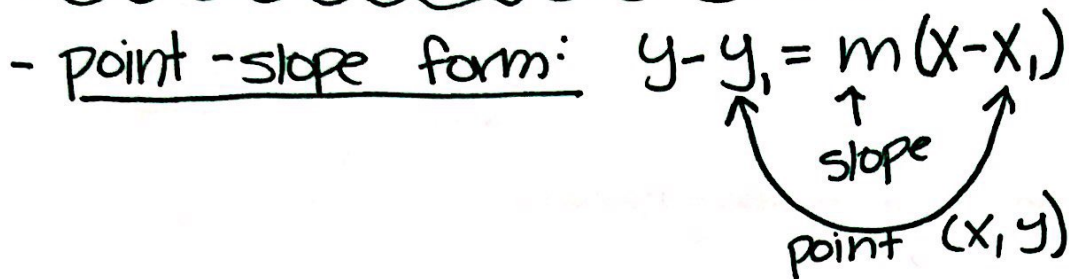 - point-slope form: y-y₁ = m(x-x₁)
slope
point (x, y)